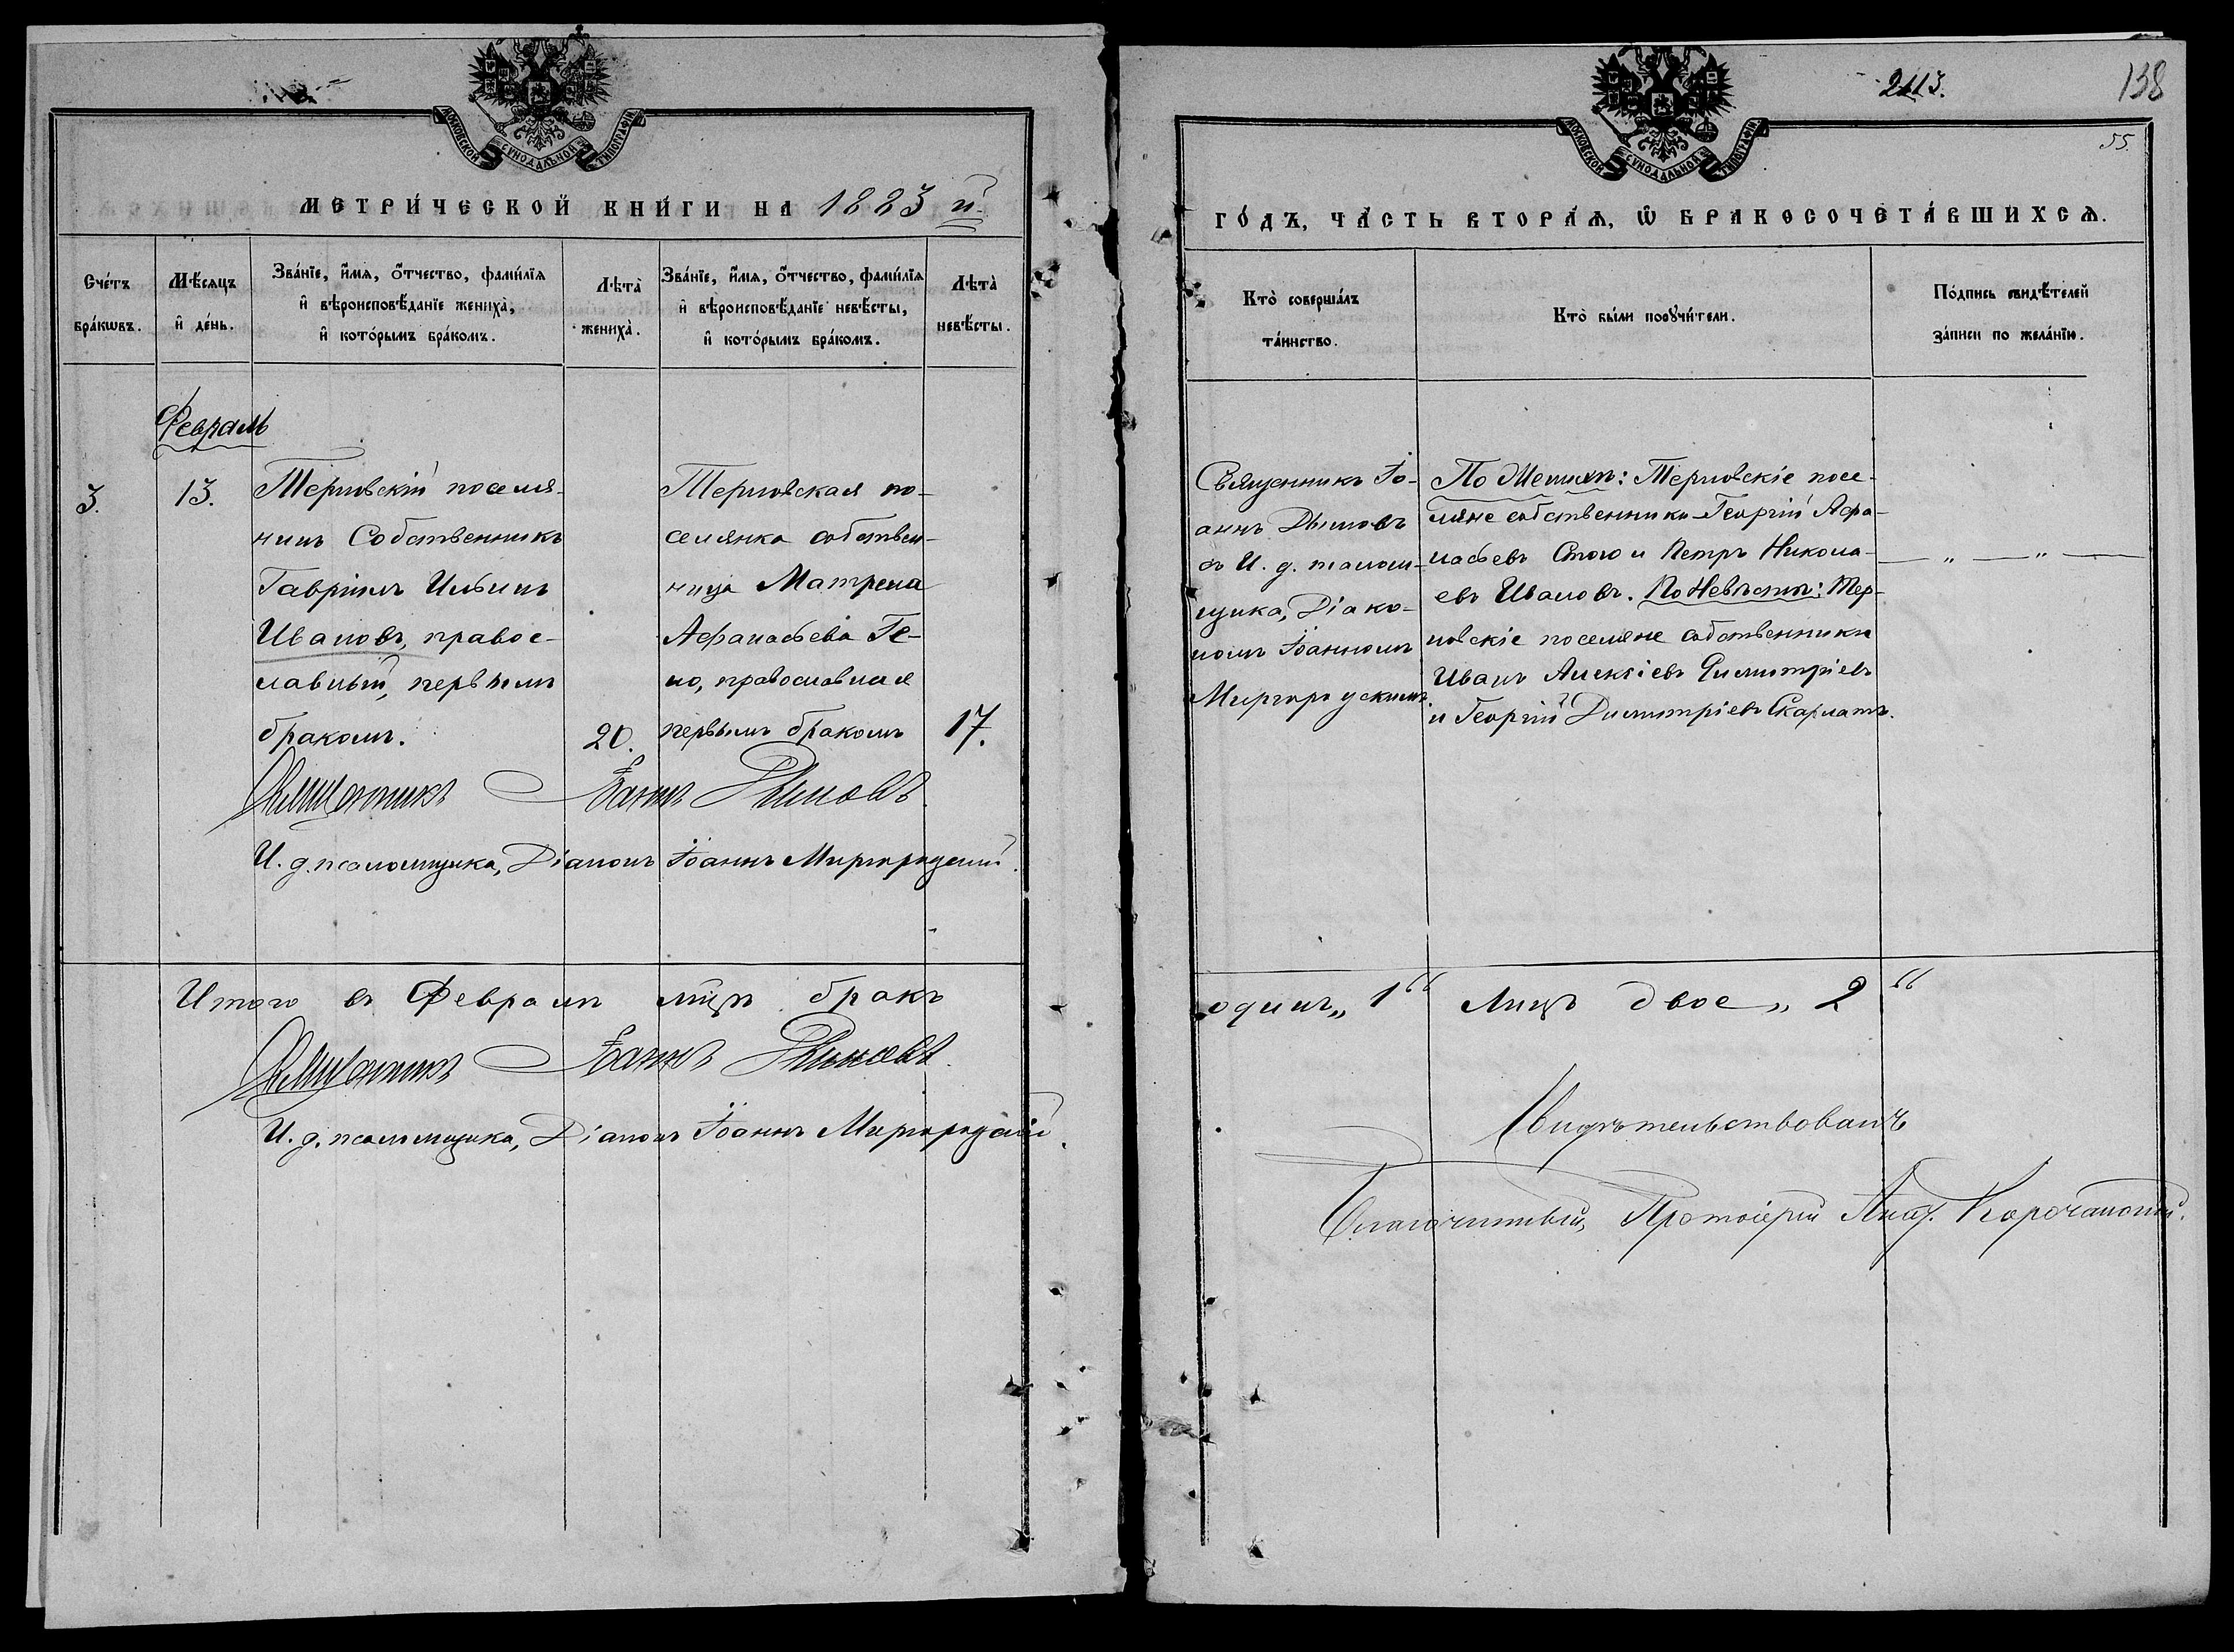 МОСКОВСКОЙ СУНОДАЛЬНОЙ ТИПОГРАФІИ
МЕТРИ́ЧЕСКОЙ КНИ́ГИ НА 1883 й
Сче́тъ бра́кѡвъ.
Мѣ́сяцъ и҆ де́нь.
Зва́нїе, и҆́мѧ, ѻ҆́тчество, фами́лїѧ
и҆ вѣроисповѣ́данїе жениха̀,
и҆ кото́рымъ бра́комъ.
Лѣта̀ жениха̀.
Зва́нїе, и҆́мѧ, ѻ҆́тчество, фами́лїѧ
и҆ вѣроисповѣ́данїе невѣ́сты,
и҆ кото́рымъ бра́комъ.
Лѣта̀ невѣ́сты.
Февраль
3.
13.
Терновскій поселя-
нинъ Собственникъ
Гавріилъ Ильинъ
Ивановъ, правос-
лавный, первымъ
бракомъ.
20.
Терновская по-
селянка собствен-
ница Матрена
Афанасьева Ге-
но, православная
первымъ бракомъ
17.
Священникъ Іоаннъ Дымовъ
И. д. псаломщика, Діаконъ Іоаннъ Миргородскій.
Итого въ Февралѣ мцѣ бракъ
Священникъ Іоаннъ Дымовъ.
И. д. псаломщика, Діаконъ Іоаннъ Миргородскій.
МОСКОВСКОЙ СУНОДАЛЬНОЙ ТИПОГРАФІИ
2113.
138
55.
ГО́ДЪ, ЧА́СТЬ ВТОРА́Ѧ, Ѽ БРАКОСОЧЕТА́ВШИХСѦ.
Кто̀ соверша́лъ
та́инство.
Кто̀ бы́ли порꙋчи́тели.
По́дпись свидѣ́телей
за́писи по жела́нїю.
Священникъ Іо-
аннъ Дымовъ
съ И. д. псалом-
щика, Діако-
номъ Іоанномъ
Миргородскимъ
По Женихѣ: Терновскіе посе-
ляне собственники Георгій Афа-
насьевъ Стою и Петръ Никола-
евъ Ивановъ. По Невѣстѣ: Тер-
новскіе поселяне собственники
Иванъ Алексіевъ Филимпріевъ
и Георгій Димитріевъ Скарлатъ.
— „ — „ —
одинъ „ 1 “ Лицъ двое „ 2 “
Свидѣтельствовалъ
Благочинный, Протоіерей